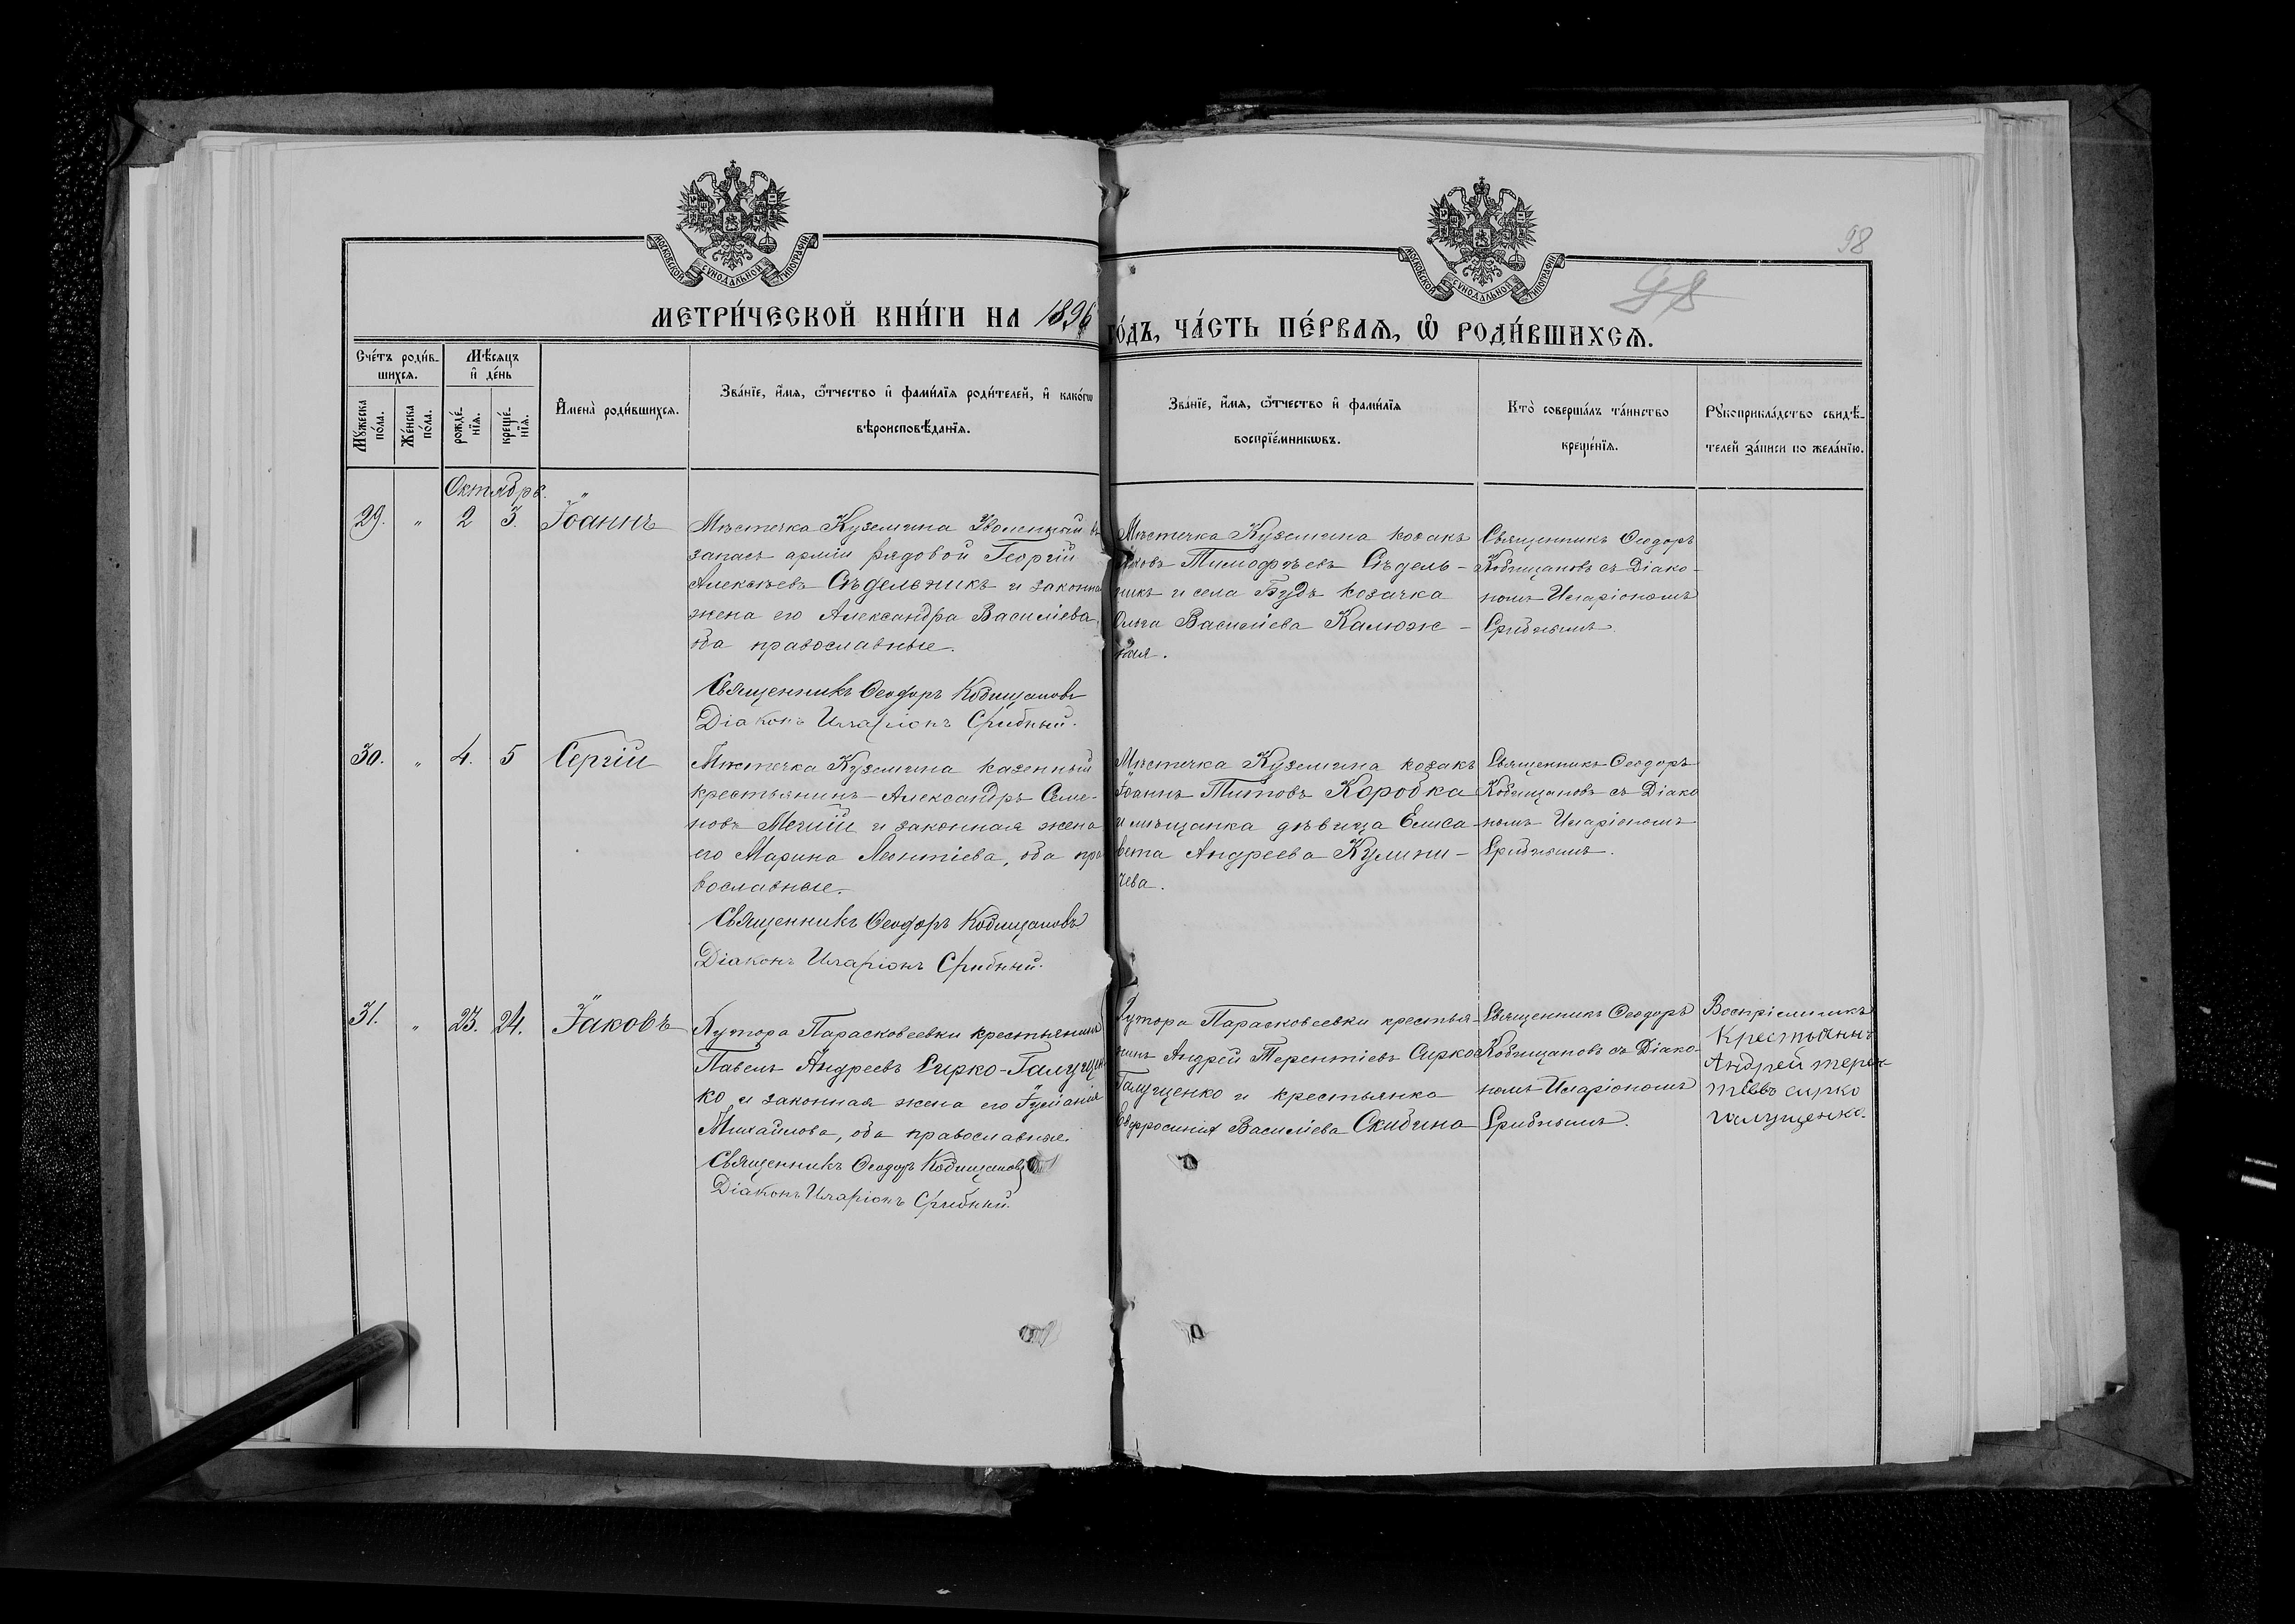 98
98
МОСКОВСКОЙ СУНОДАЛЬНОЙ ТИПОГРАФІИ
МОСКОВСКОЙ СУНОДАЛЬНОЙ ТИПОГРАФІИ
МЕТРИ́ЧЕСКОЙ КНИ́ГИ НА 1896
ГО́ДЪ, ЧА́СТЬ ПЕ́РВАѦ, Ѡ҆ РОДИ́ВШИХСѦ.
Сче́тъ роди́в-
шихсѧ.
Му́жеска по́ла.
Же́нска по́ла.
Мѣ́сѧцъ
и҆ де́нь
рожде́-
нїѧ.
креще́-
нїѧ.
И҆мена̀ роди́вшихсѧ.
Зва́нїе, и҆́мѧ, ѻ҆́тчество и҆ фами́лїѧ роди́телей, и҆ како́гѡ
вѣроисповѣ́данїѧ.
Зва́нїе, и҆́мѧ, ѻ҆́тчество и҆ фами́лїѧ
воспрїе́мникѡвъ.
Кто̀ соверша́лъ та́инство
креще́нїѧ.
Рꙋкоприкла́дство свидѣ́-
телей за́писи по жела́нїю.
Октябрь.
29. " 2 3. Іоаннъ
Мѣстечка Куземина Уволенный въ
запасъ арміи рядовой Георгій
Алексѣевъ Сѣдельникъ и законная
жена его Александра Василіева,
оба православные.
Священникъ Ѳеодоръ Кобищановъ
Діаконъ Иларіонъ Срибный.
Мѣстечка Куземина козакъ
Яковъ Тимофѣевъ Сѣдель-
никъ и села Будъ козачка
Ольга Василіева Калюж-
ная.
Священникъ Ѳеодоръ
Кобищановъ съ Діако-
номъ Иларіономъ
Срибнымъ.
30. " 4. 5 Сергій
Мѣстечка Куземина казенный
крестьянинъ Александръ Семе-
новъ и законная жена
его Марина Леонтіева, оба пра
вославные.
Священникъ Ѳеодоръ Кобищановъ
Діаконъ Иларіонъ Срибный.
Мѣстечка Куземина козакъ
Іоаннъ Титовъ Коробка
и мѣщанка дѣвица Елиса-
вета Андреева Кулини-
чева.
Священникъ Ѳеодоръ
Кобищановъ съ Діако
номъ Иларіономъ
Срибнымъ.
31. " 23. 24. Іаковъ
Хутора Парасковеевки крестьянинъ
Павелъ Андреевъ Сирко-Галущен
ко и законная жена его Іуліанія
Михайлова, оба православные.
Священникъ Ѳеодоръ Кобищановъ
Діаконъ Иларіонъ Срибный.
Хутора Парасковеевки крестья-
нинъ Андрей Терентіевъ Сирко
Галущенко и крестьянка
Евфросинія Василіева Скибина
Священникъ Ѳеодоръ
Кобищановъ съ Діако-
номъ Иларіономъ
Срибнымъ.
Воспріемникъ
крестьянинъ
Андрей терен
тіевъ сирко
галущенко.